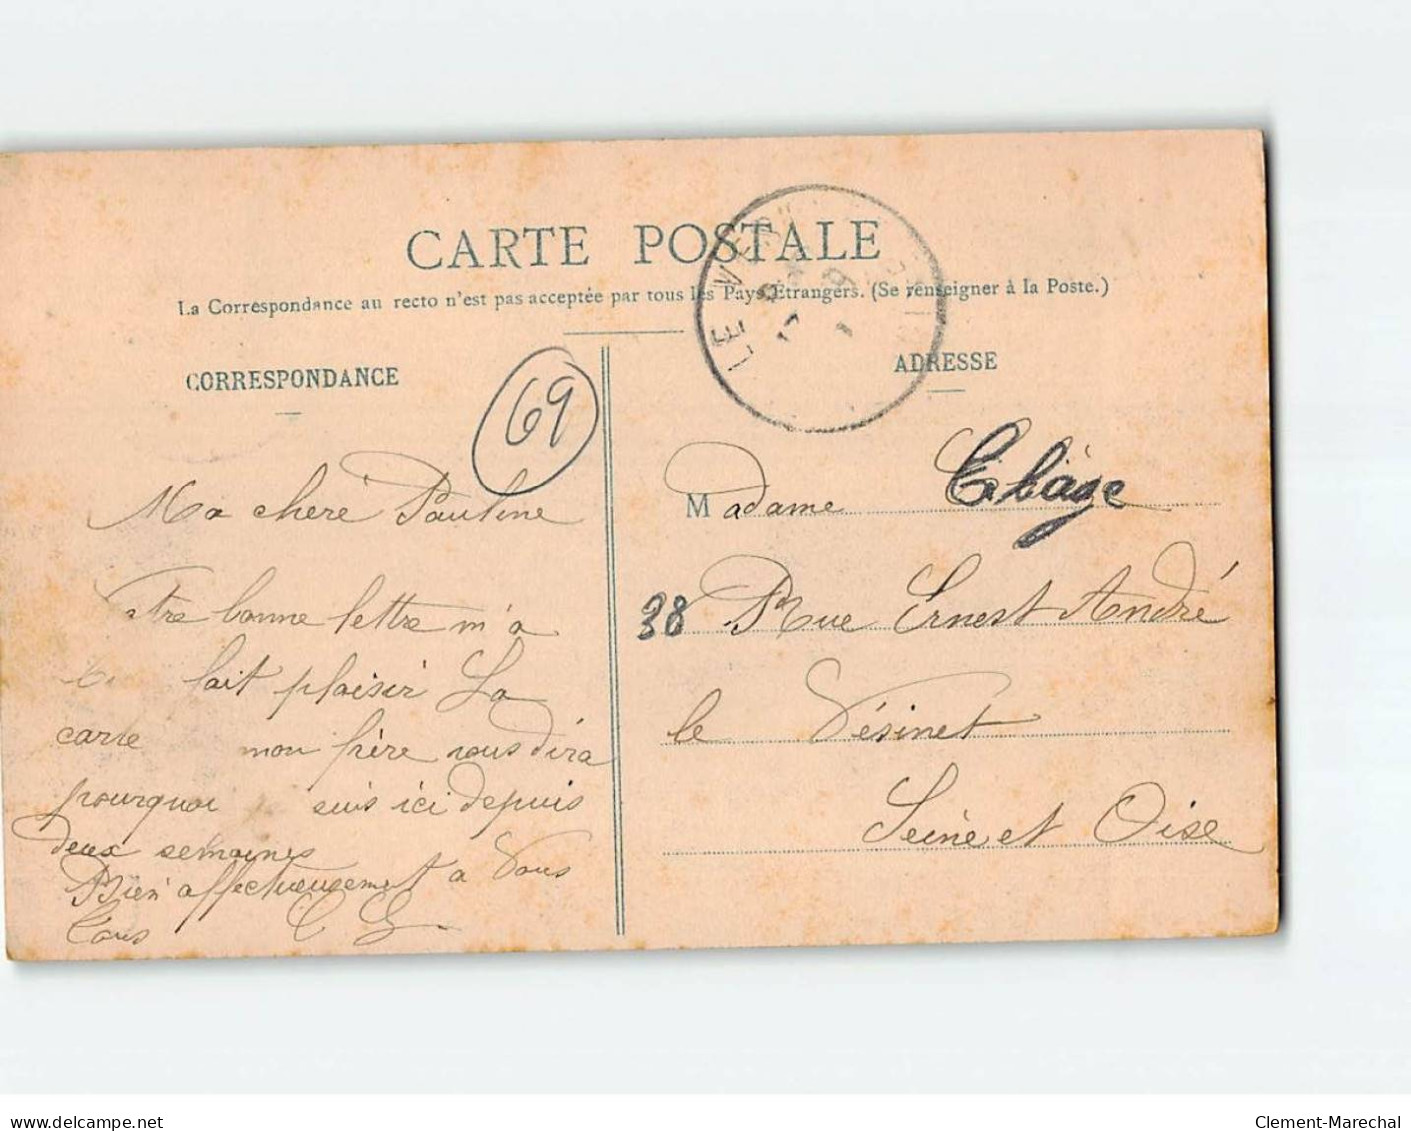 CARTE POSTALE
La Correspondance au recto n'est pas acceptée par tous les Pays Étrangers. (Se renseigner à la Poste.)
CORRESPONDANCE
69
Ma chère Pauline
bonne lettre m'a
fait plaisir La
carte mon frère vous dira
pourquoi suis ici depuis
deux semaines
Bien affectueusement a Vous
Tous
C G
LE VESI
ADRESSE
Madame
38 Rue Ernest André
le Vésinet
Seine et Oise
www.delcampe.net
Clement-Marechal